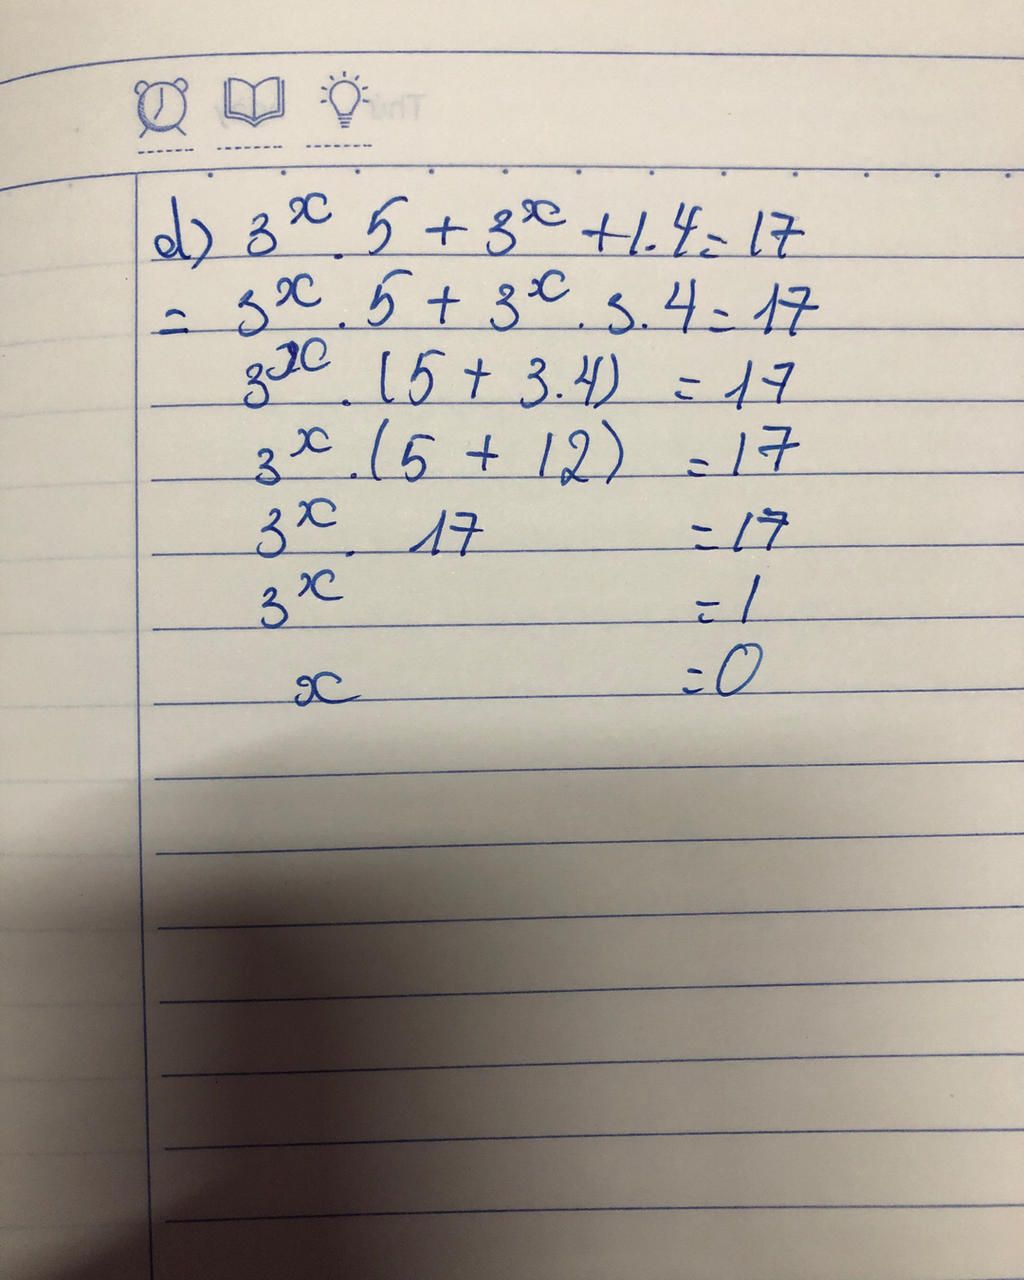 d) 3^x . 5 + 3^x + 1 . 4 = 17
= 3^x . 5 + 3^x . 3 . 4 = 17
3^x . (5 + 3.4) = 17
3^x . (5 + 12) = 17
3^x . 17 = 17
3^x = 1
x = 0